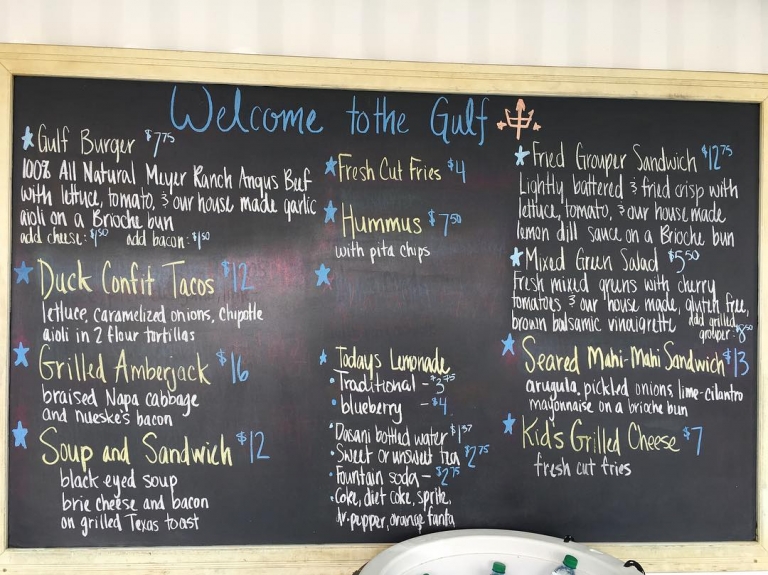 Welcome to the Gulf
Gulf Burger $7.75
100% All Natural Meyer Ranch Angus Beef
with lettuce, tomato, & our house made garlic
aioli on a Brioche bun
add cheese: $1.50 add bacon: $1.50
Duck Confit Tacos $12
lettuce, caramelized onions, chipotle
aioli in 2 flour tortillas
Grilled Amberjack $16
braised Napa cabbage
and nueske's bacon
Soup and Sandwich $12
black eyed soup
brie cheese and bacon
on grilled Texas toast
Fresh Cut Fries $4
Hummus $7.50
with pita chips
Todays Lemonade
Traditional - $3.75
blueberry - $4
Dasani bottled water
Sweet or unsweet tea $2.75
Fountain soda - $2.75
Coke, diet coke, sprite,
dr.pepper, orange fanta
Fried Grouper Sandwich $12.75
Lightly battered & fried crisp with
lettuce, tomato, & our house made
lemon dill sauce on a Brioche bun
Mixed Green Salad $5.50
Fresh mixed greens with cherry
tomatoes & our house made, gluten free,
brown balsamic vinaigrette add grilled
grouper:
Seared Mahi-Mahi Sandwich $13
arugula, pickled onions, lime-cilantro
mayonnaise on a brioche bun
Kid's Grilled Cheese $7
fresh cut fries